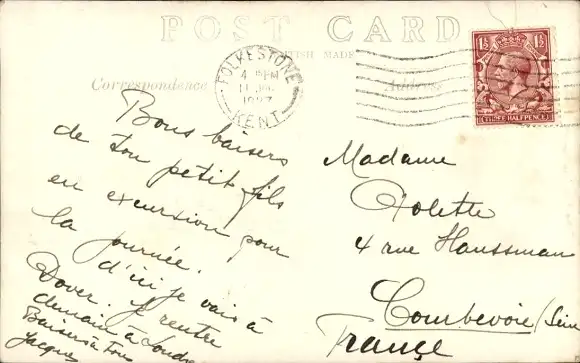 POST CARD
BRITISH MADE
Correspondence
Address
FOLKESTONE
4 PM
11
1927
KENT
1½ 1½
THREE HALFPENCE
Bons baisers
de ton petit fils
en excursion pour
la journée.
d'ici je vais à
Dover. Je rentre
demain à Londr
Baisers à tous
Jacque
Madame
Colette
4 rue Haussman
Courbevoie (Seine
France